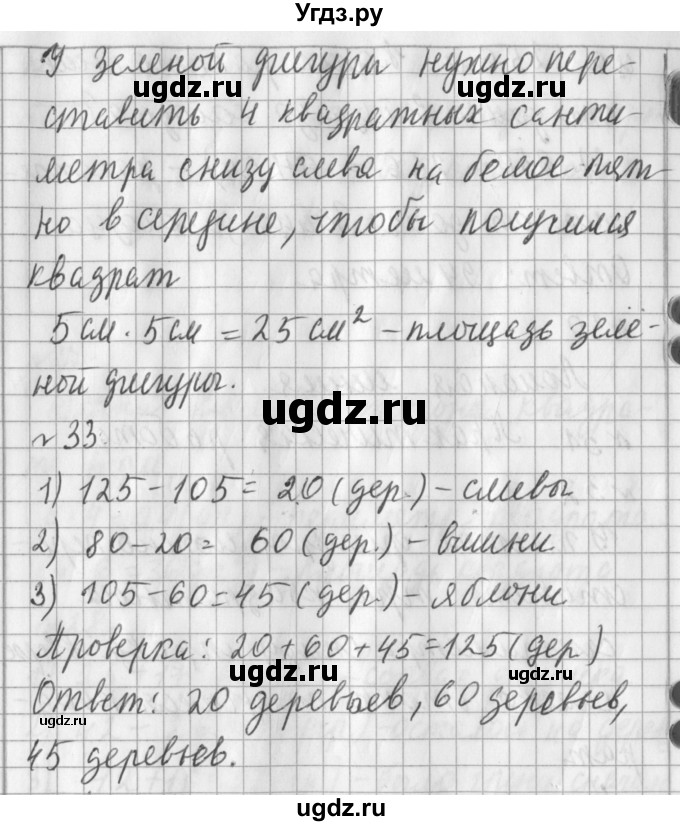 Угдз.ру
У зеленой фигуры нужно пере-
ставить 4 квадратных санти-
метра снизу слева на белое пят-
но в середине, чтобы получился
квадрат
5 см · 5 см = 25 см² – площадь зелё-
ной фигуры.
№33.
1) 125 – 105 = 20 (дер.) – сливы
2) 80 – 20 = 60 (дер.) – вишни
3) 105 – 60 = 45 (дер.) – яблони
Проверка: 20 + 60 + 45 = 125 (дер.)
Ответ: 20 деревьев, 60 деревьев,
45 деревьев.
ugdz.ru
ugdz.ru
ugdz.ru
ugdz.ru
ugdz.ru
ugdz.ru
ugdz.ru
ugdz.ru
ugdz.ru
ugdz.ru
ugdz.ru